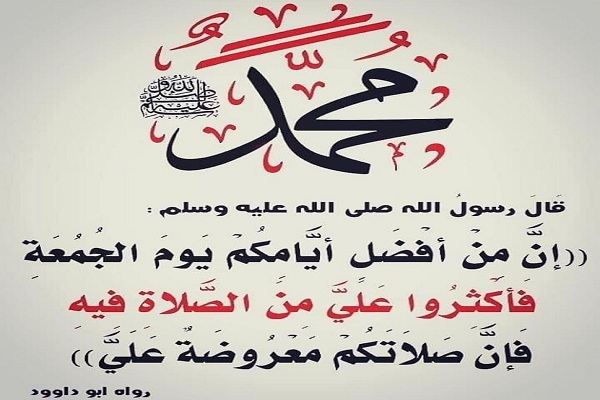 محمد
صلى الله عليه وسلم
قَالَ رسولُ الله صلى الله عليه وسلم :
((إنَّ مِنْ أفضَل أيَّامِكُم يَومَ الجُمُعَةِ
فَأكثرُوا عَليَّ مِنَ الصَّلاةِ فيهِ
فَإنَّ صَلاَتَكُم مَعْرُوضَةٌ عَلَيَّ))
رواه ابو داوود